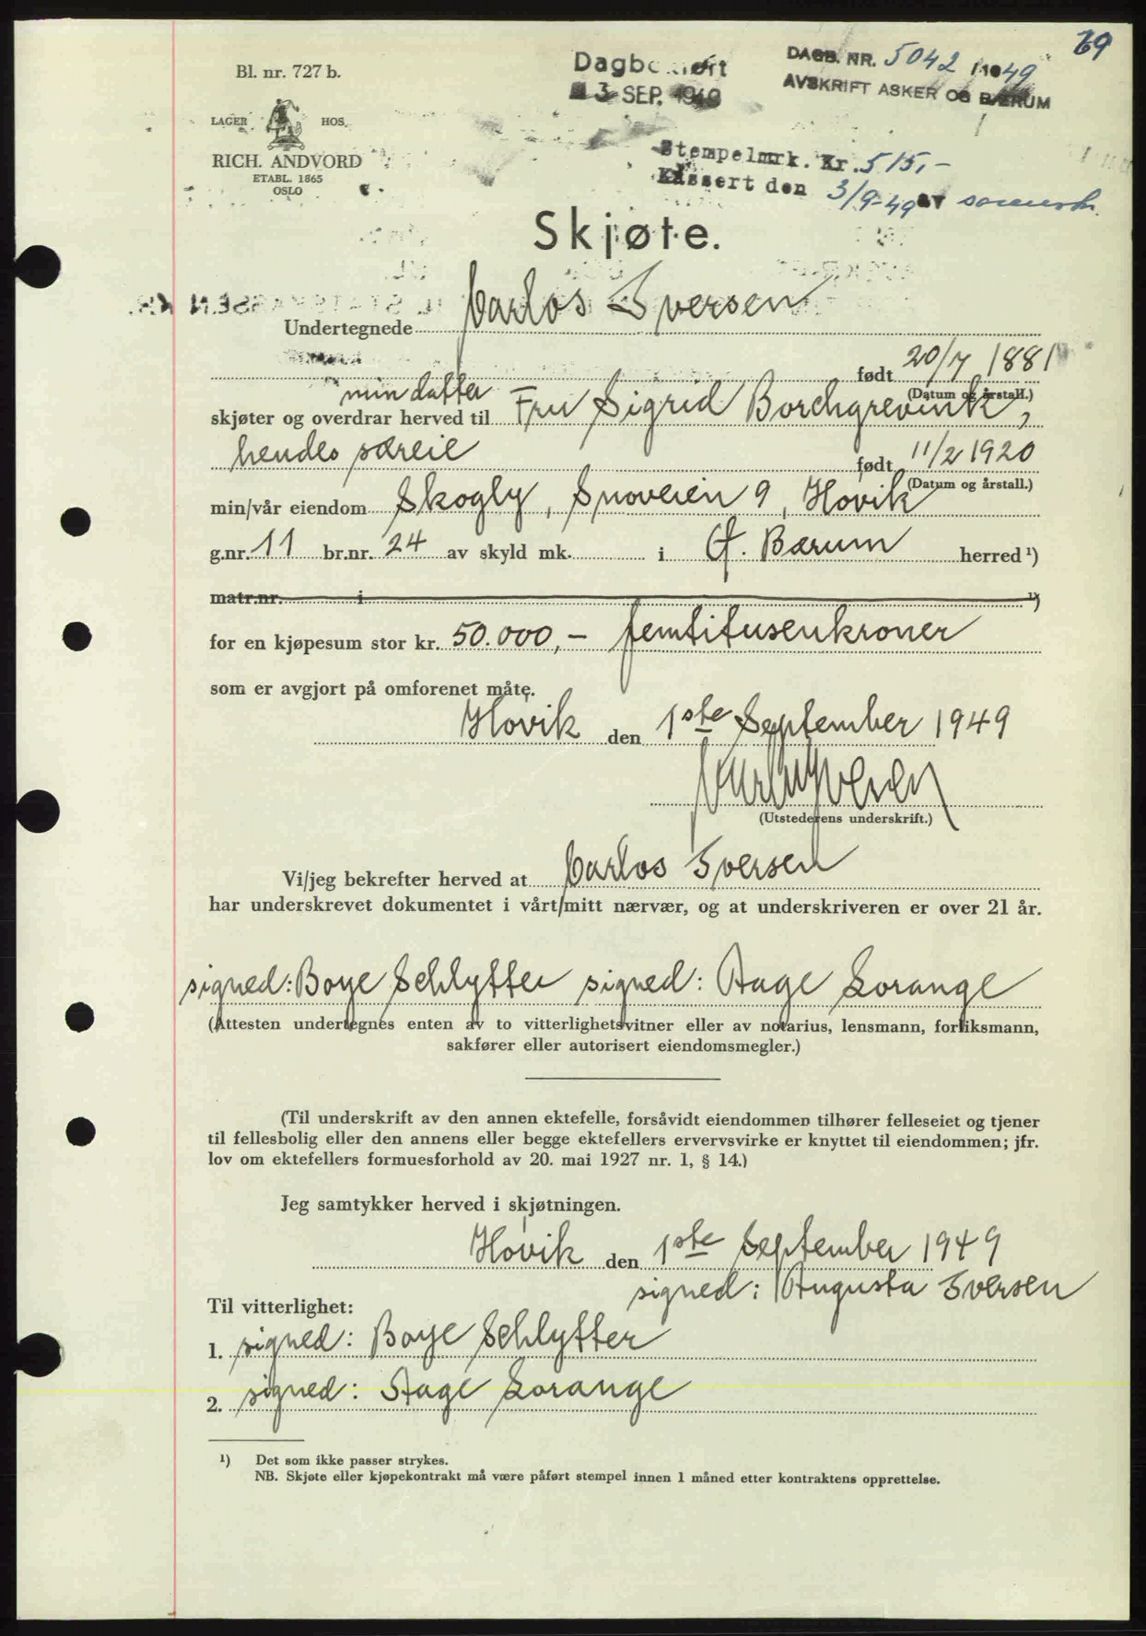 69
Bl. nr. 727 b.
LAGER HOS
RICH. ANDVORD
ETABL. 1865
OSLO
Dagbokført
3 SEP. 1949
DAGB. NR. 5042 / 1949
AVSKRIFT ASKER OG BÆRUM
Stempelmrk. Kr. 515,-
Kassert den 3/9-49 av sorensk.
Skjøte.
Undertegnede Carlos Iversen
født 20/7 1881
(Datum og årstall.)
min datter
skjøter og overdrar herved til Fru Sigrid Borchgrevink,
hendes særeie født 11/2 1920
(Datum og årstall.)
min/vår eiendom Skogly, Snoveien 9, Høvik
g.nr. 11 br.nr. 24 av skyld mk. i Ø. Bærum herred ¹)
matr.nr. i ¹)
for en kjøpesum stor kr. 50.000,- femtitusenkroner
som er avgjort på omforenet måte.
Høvik den 1ste September 1949
Carlos Iversen
(Utstederens underskrift.)
Vi/jeg bekrefter herved at Carlos Iversen
har underskrevet dokumentet i vårt/mitt nærvær, og at underskriveren er over 21 år.
signed: Boye Schlytter signed: Aage Lorange
(Attesten undertegnes enten av to vitterlighetsvitner eller av notarius, lensmann, forliksmann,
sakfører eller autorisert eiendomsmegler.)
(Til underskrift av den annen ektefelle, forsåvidt eiendommen tilhører felleseiet og tjener
til fellesbolig eller den annens eller begge ektefellers ervervsvirke er knyttet til eiendommen; jfr.
lov om ektefellers formuesforhold av 20. mai 1927 nr. 1, § 14.)
Jeg samtykker herved i skjøtningen.
Høvik den 1ste September 1949
signed: Augusta Iversen
Til vitterlighet:
1. signed: Boye Schlytter
2. signed: Aage Lorange
¹) Det som ikke passer strykes.
NB. Skjøte eller kjøpekontrakt må være påført stempel innen 1 måned etter kontraktens opprettelse.